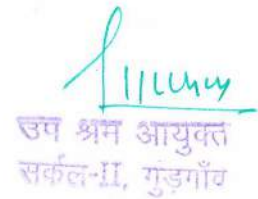 उप श्रम आयुक्त
सर्कल-II, गुड़गाँव